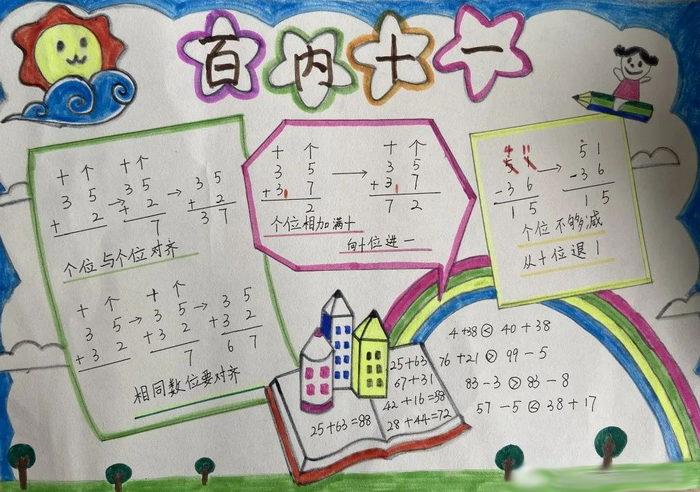 百内十一
十 个 十 个
3 5 → 3 5 → 3 5
+ 2 + 2 + 2
7 3 7
个位与个位对齐
十 个 十 个
3 5 → 3 5 → 3 5
+ 3 2 + 3 2 + 3 2
7 6 7
相同数位要对齐
十 个 十 个
3 5 → 3 5
+ 3 1 7 + 3 1 7
2 7 2
个位相加满十
向十位进一
4 11
5 1 → 5 1
- 3 6 - 3 6
1 5 1 5
个位不够减
从十位退1
25+63
67+31
42+16=58
28+44=72
25+63=88
4+38<40+38
76+21>99-5
83-3>83-8
57-5<38+17